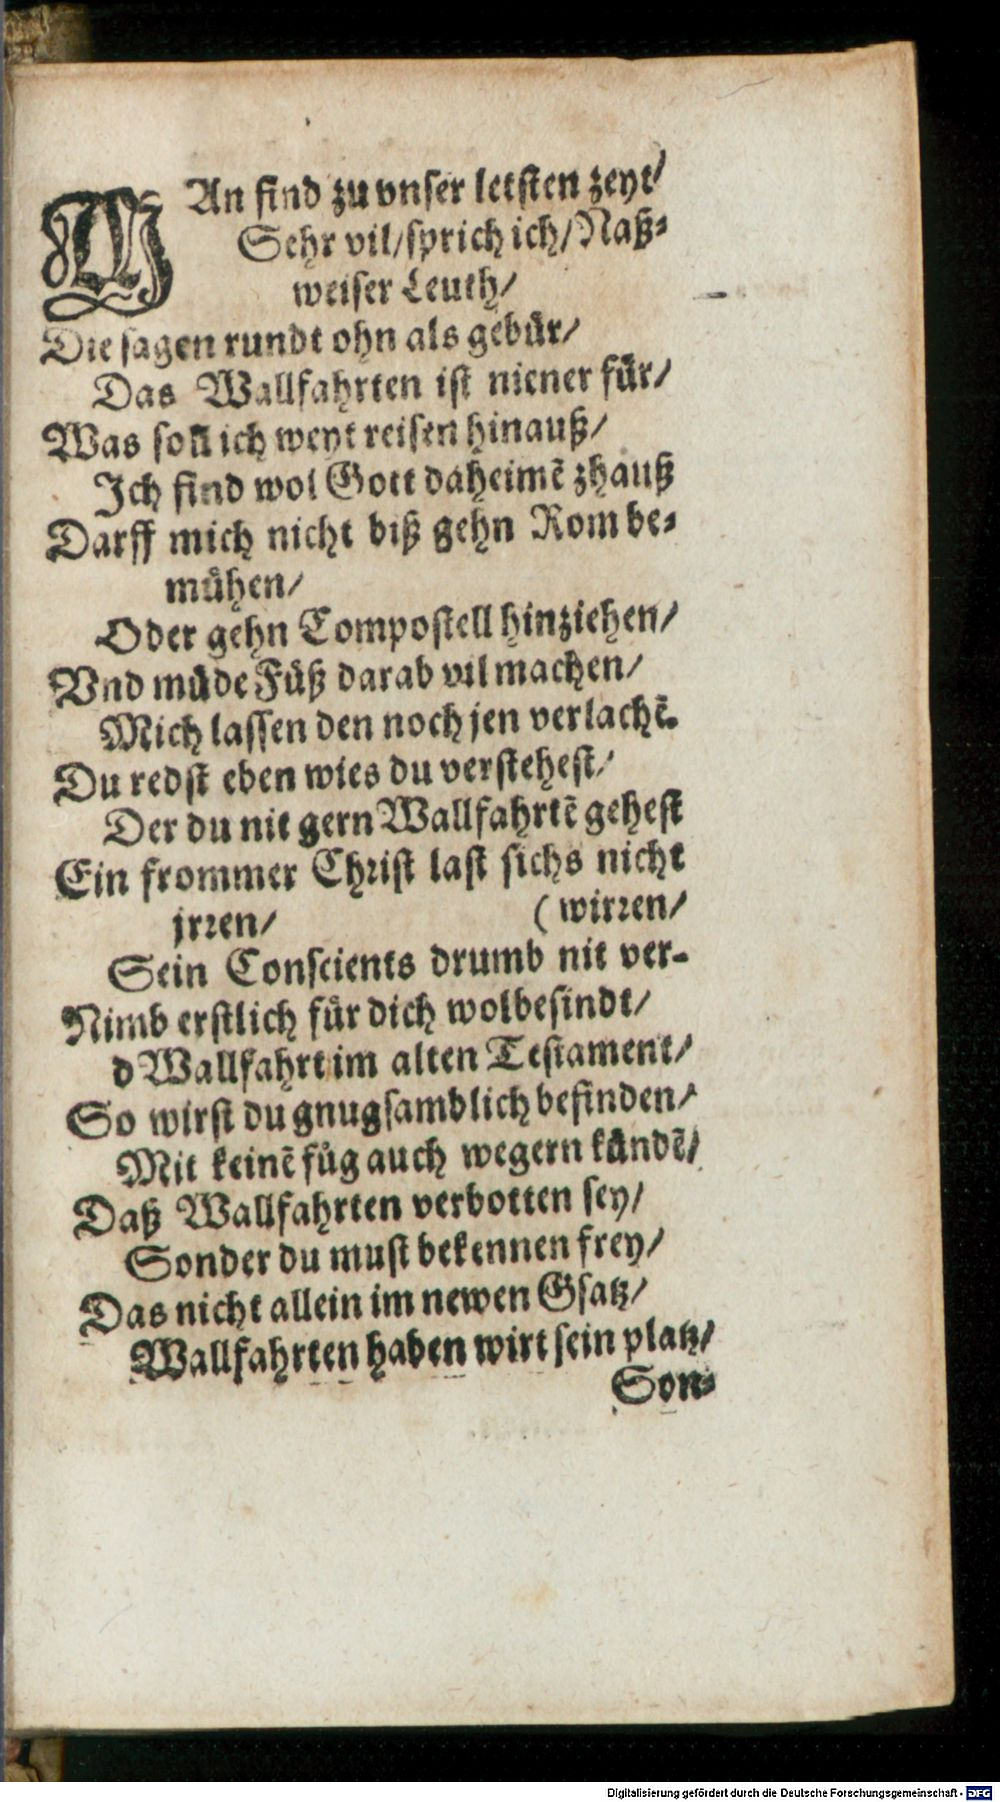 MAn find zu vnser letsten zeyt/
Sehr vil/sprich ich/Naß⸗
weiser Leuth/
Die sagen rundt ohn als gebür/
Das Wallfahrten ist niener für/
Was soll ich weyt reisen hinauß/
Ich find wol Gott daheimē zhauß
Darff mich nicht biß gehn Rom be⸗
mühen/
Oder gehn Compostell hinziehen/
Vnd müde Füß darab vil machen/
Mich lassen den noch jen verlachē.
Du redst eben wies du verstehest/
Der du nit gern Wallfahrtē gehest
Ein frommer Christ last sichs nicht
jrren/ (wirren/
Sein Conscients drumb nit ver-
Nimb erstlich für dich wolbesindt/
d Wallfahrt im alten Testament/
So wirst du gnugsamblich befinden/
Mit keinē füg auch wegern kündē/
Daß Wallfahrten verbotten sey/
Sonder du must bekennen frey/
Das nicht allein im newen Gsatz/
Wallfahrten haben wirt sein platz/
Son⸗
Digitalisierung gefördert durch die Deutsche Forschungsgemeinschaft - DFG